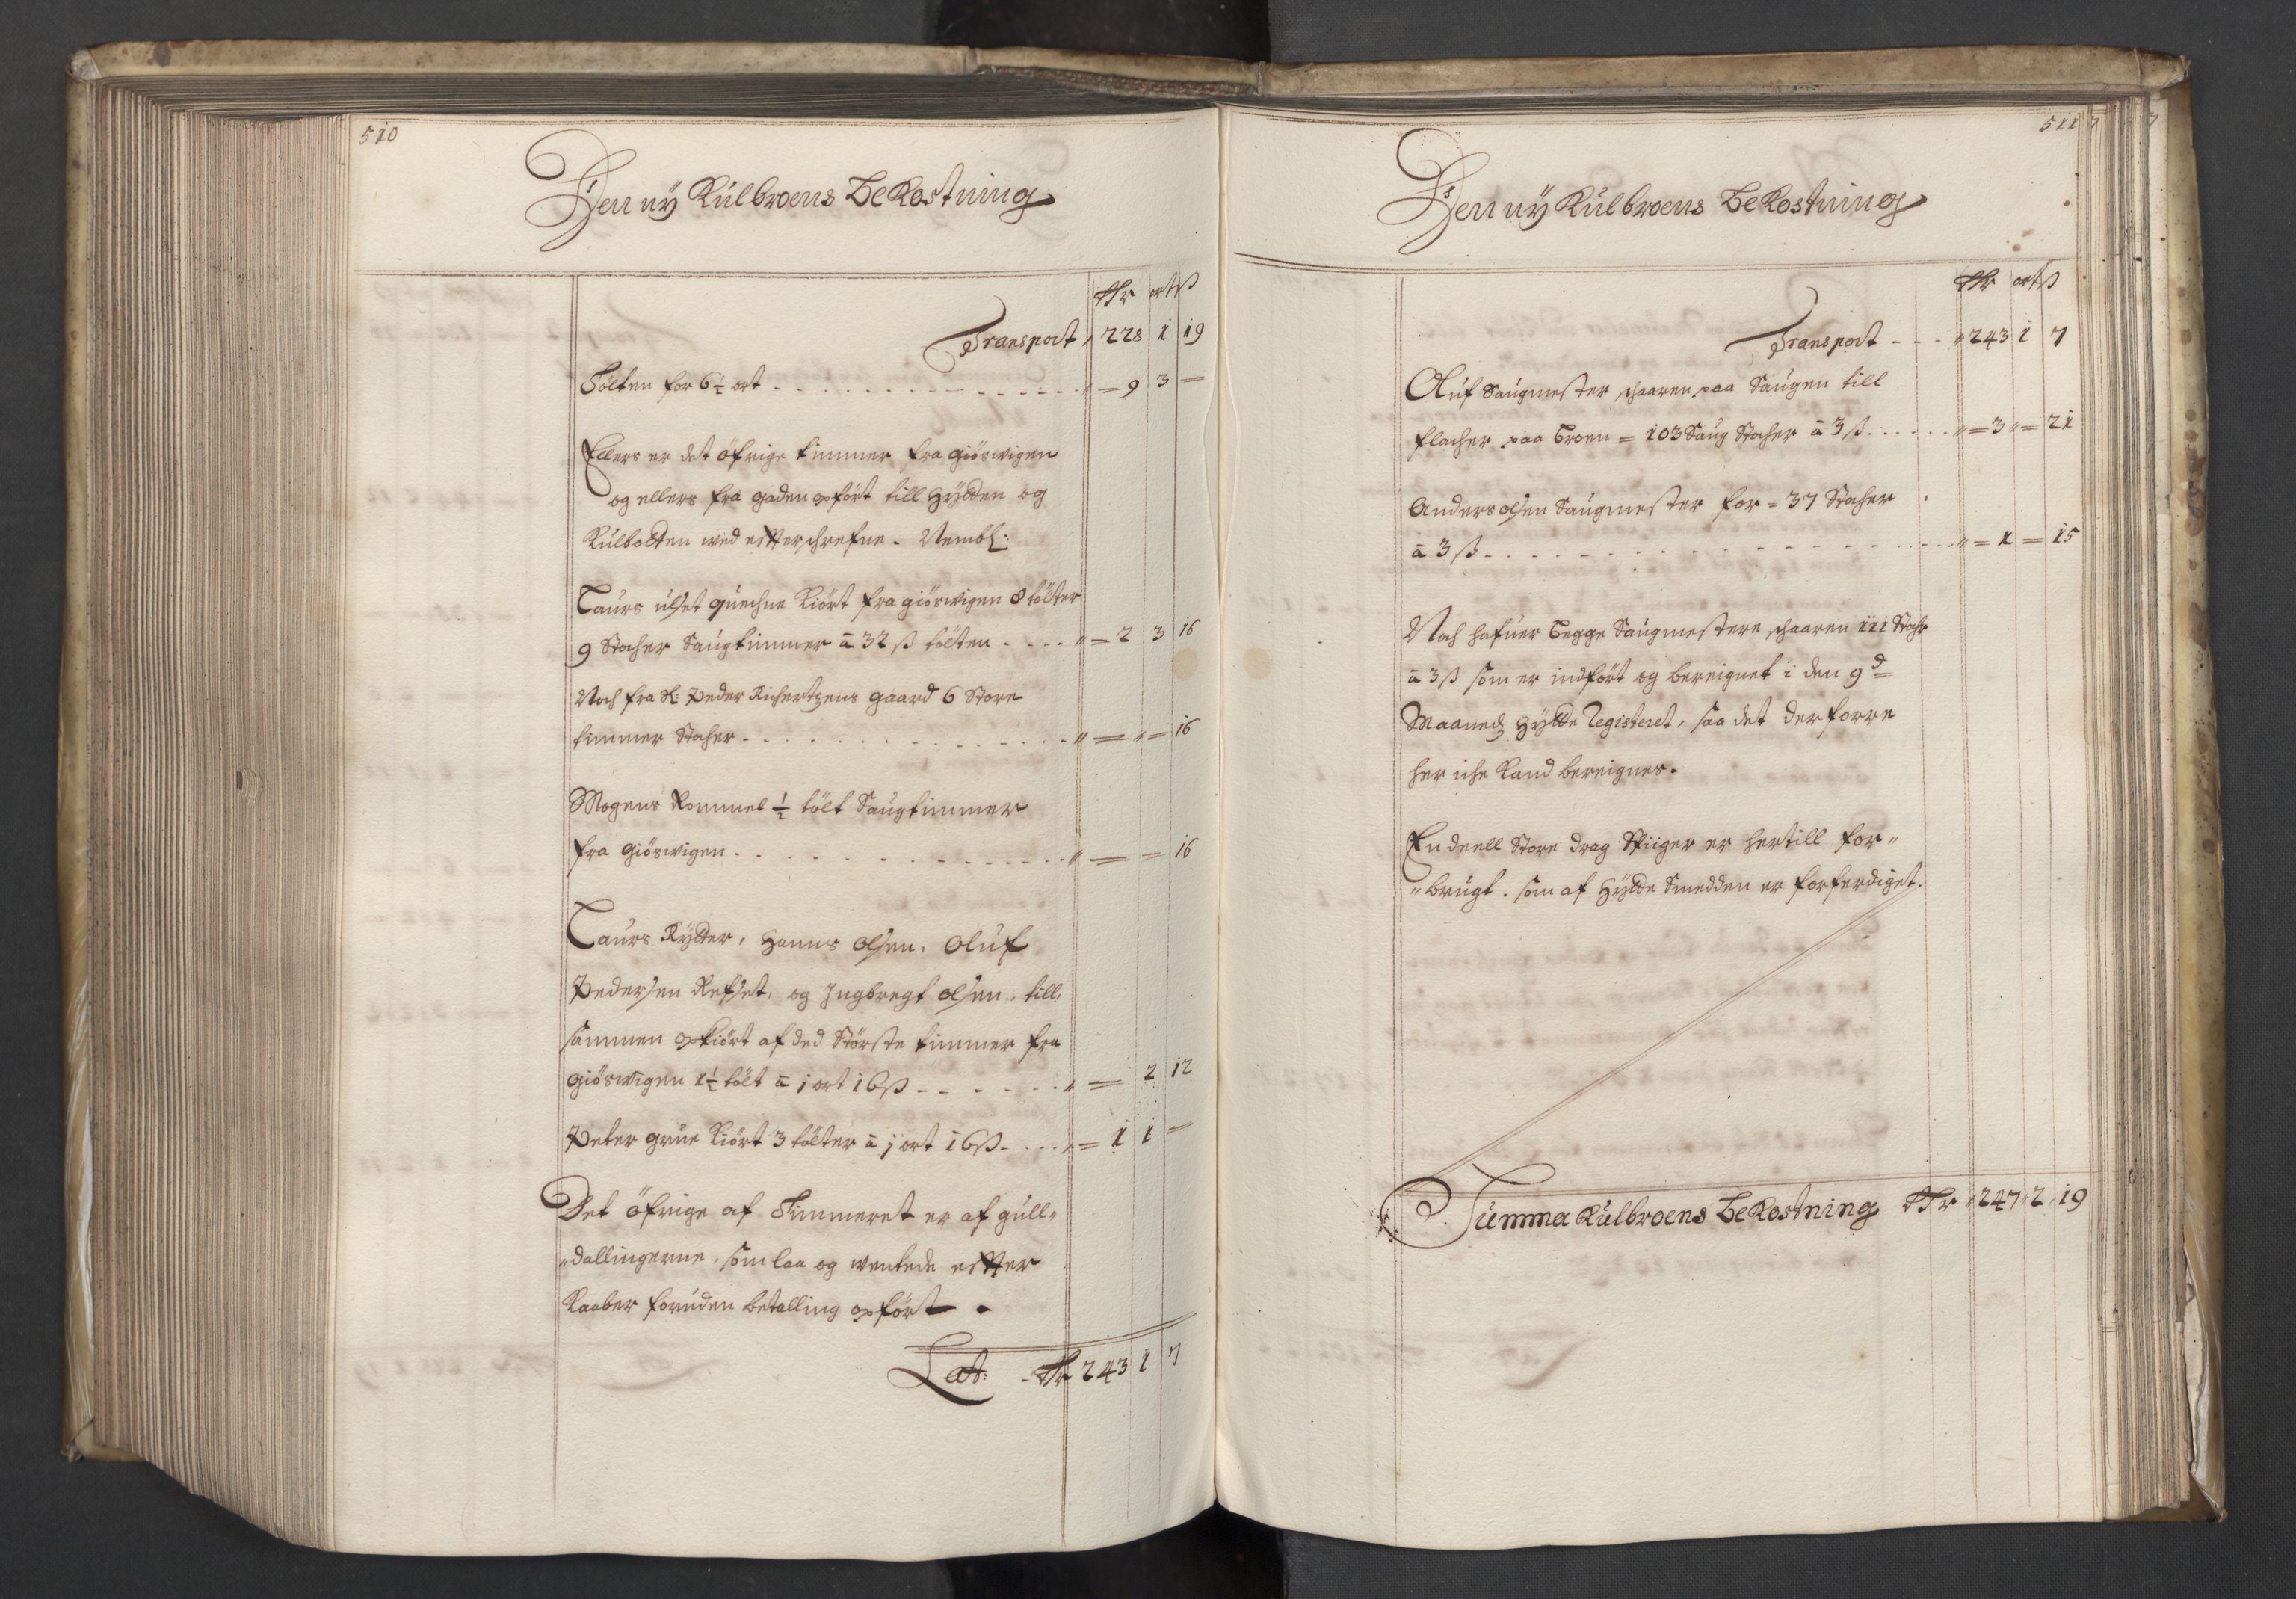 510
Den nÿ Kulbroens Bekostning
Dlr ort ß
Transport 228 1 19
Tölten for 6½ ort - - - = 9 3 -
Ellers er det öfrige timmer fra giöswigen
og ellers fra gaden opfört till Hÿtten og
Kulbotten wed effterschrefne. Nembl:
Laurs ulset quechne Kiört fra giöswigen 8 tölter
9 Stocher Saugtimmer ā 32 ß tölten - - - = 2 3 16
Noch fra Sl: Peder Richertzens gaard 6 Store
timmer Stocher - - - " = " = 16
Mogens Rommel ½ tölt Saugtimmer
fra Giöswigen - - - " = = 16
Laurs Rÿtter, Hanns olsen, Oluf
Pedersen Refset, og Ingbregt olsen, till,
sammen opkiört af ded Störste timmer fra
giöswigen 1½ tölt ā j ort 16ß - - - = 2 12
Peter grue Kiört 3 tölter ā j ort 16ß - - - = 1 1 -
Det öfrige af Timmeret er af gull-
"dallingerne, som laa og wentede effter
Kaaber foruden betalling opfört.
Lat: Dlr 243 1 7
511
Den nÿ Kulbroens Bekostning
Dlr ort ß
Transport - - - " 243 1 7
Oluf Saugmester schaaren paa Saugen till
flacher paa Broen = 103 Saug Stocher ā 3 ß - - - " = 3 " = 21
Anders olsen Saugmester for = 37 Stocher
ā 3 ß - - - " = 1 = 15
Noch hafuer begge Saugmestere schaaren 111 Stochr
ā 3 ß som er indfört og bereignet i den 9d
Maanedz Hÿtte Registeret, saa det derforre
her iche Kand bereignes.
En deell Store drag Spiiger er hertill for-
"brugt. som af Hÿtte Smedden er forferdiget.
Summa Kulbroens Bekostning Dlr 247 2 19